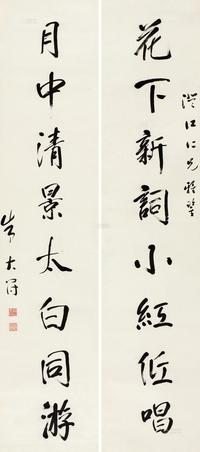 澄江仁兄雅鑒
花下新詞小紅低唱
月中清景太白同游